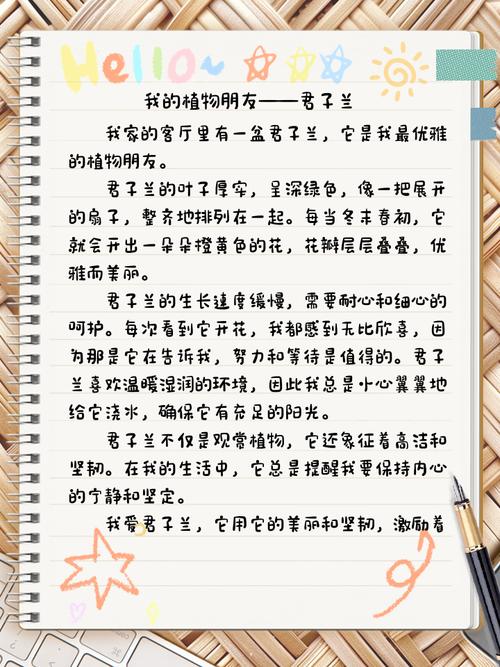 Hello~
我的植物朋友——君子兰
我家的客厅里有一盆君子兰，它是我最优雅
的植物朋友。
君子兰的叶子厚实，呈深绿色，像一把展开
的扇子，整齐地排列在一起。每当冬末春初，它
就会开出一朵朵橙黄色的花，花瓣层层叠叠，优
雅而美丽。
君子兰的生长速度缓慢，需要耐心和细心的
呵护。每次看到它开花，我都感到无比欣喜，因
为那是它在告诉我，努力和等待是值得的。君子
兰喜欢温暖湿润的环境，因此我总是小心翼翼地
给它浇水，确保它有充足的阳光。
君子兰不仅是观赏植物，它还象征着高洁和
坚韧。在我的生活中，它总是提醒我要保持内心
的宁静和坚定。
我爱君子兰，它用它的美丽和坚韧，激励着